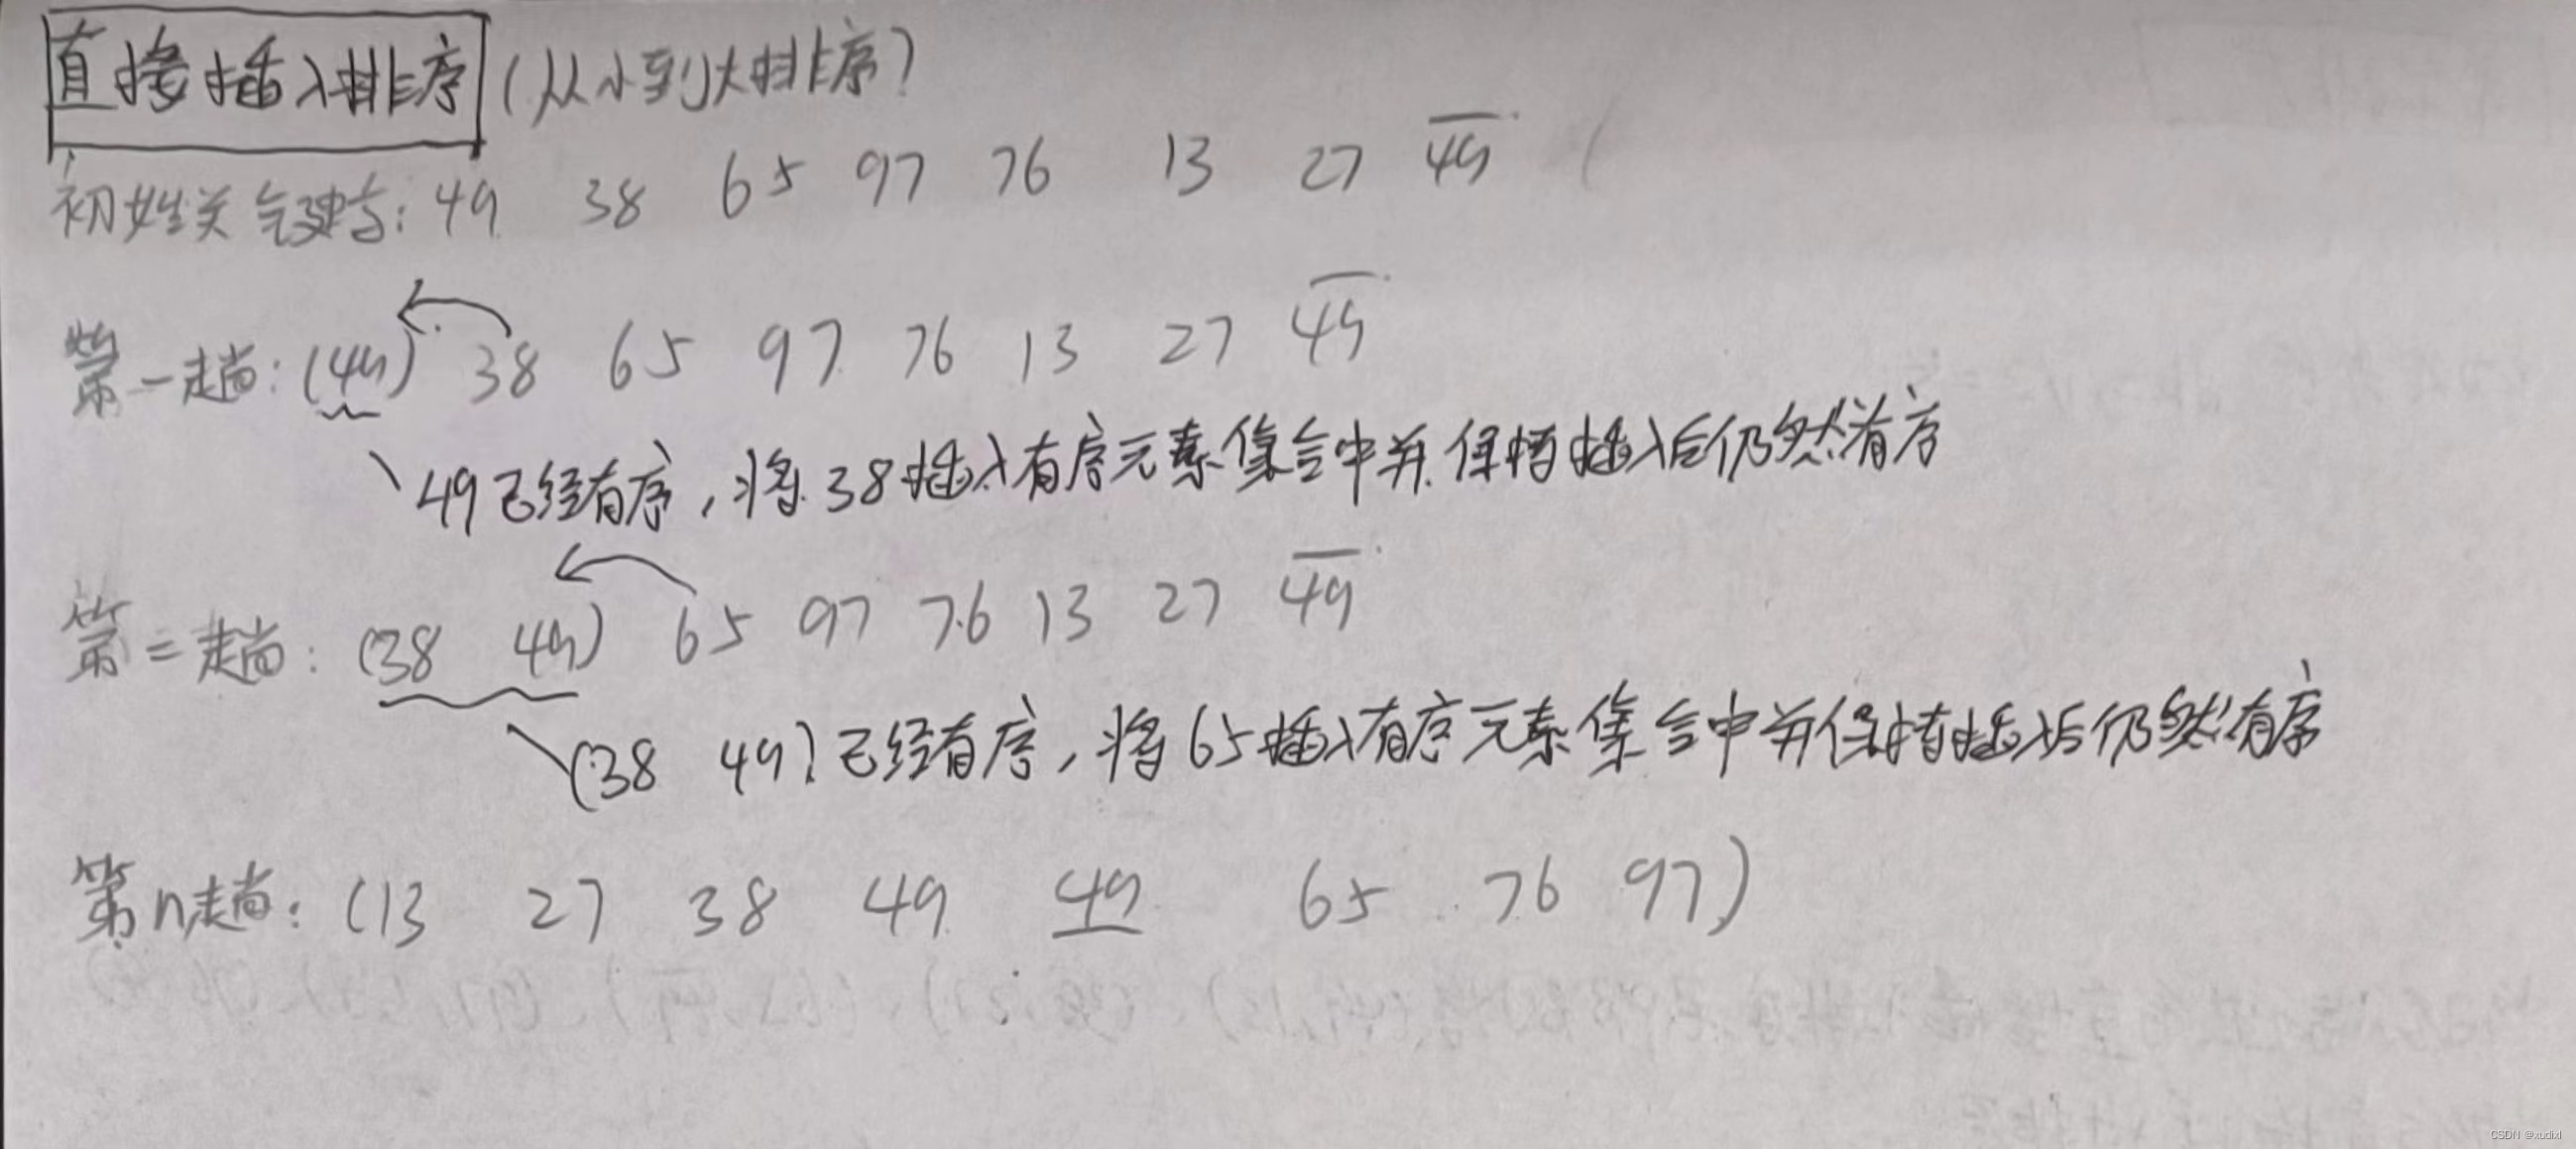 直接插入排序(从小到大排序)
初始关键字: 49 38 65 97 76 13 27 4̅9̅
第一趟: (49) 38 65 97 76 13 27 4̅9̅
49已经有序,将38插入有序元素集合中并保持插入后仍然有序
第二趟: (38 49) 65 97 76 13 27 4̅9̅
(38 49)已经有序,将65插入有序元素集合中并保持插入后仍然有序
第n趟: (13 27 38 49 4̲9̲ 65 76 97)
CSDN @xudixl